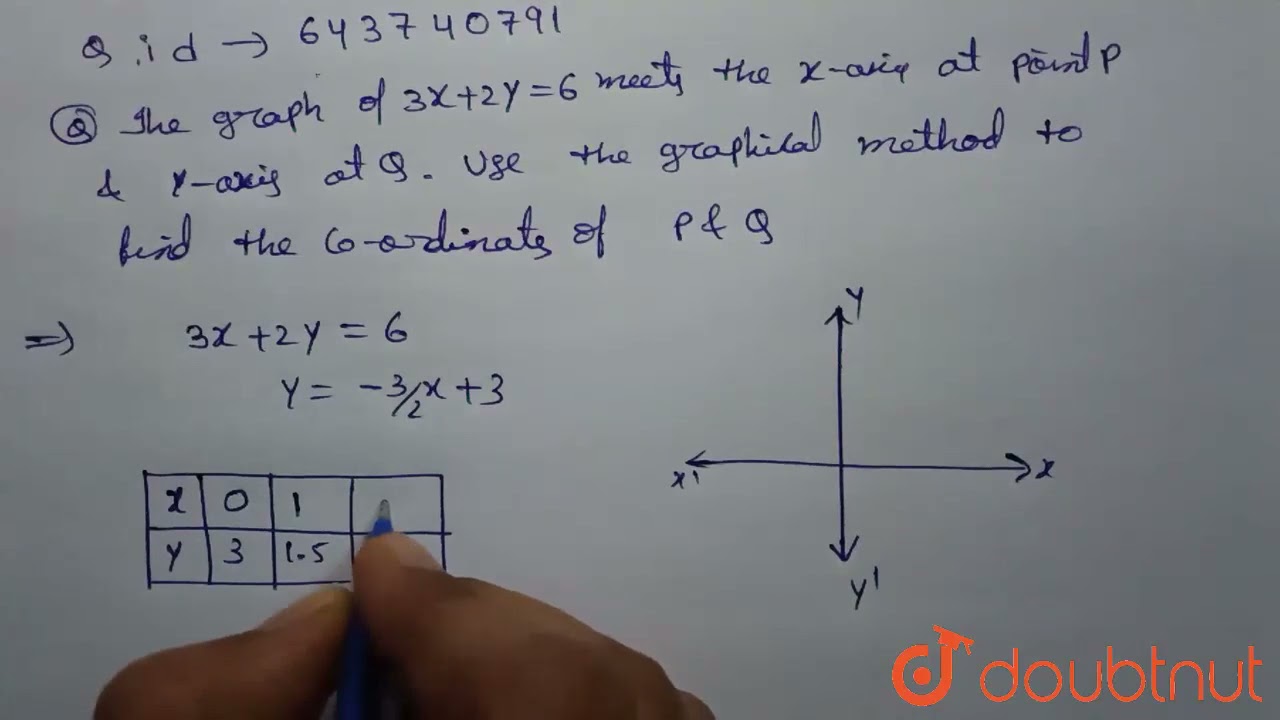 Q.id → 643740791
Q The graph of 3x+2y=6 meets the x-axis at point P
& y-axis at Q. Use the graphical method to
find the Co-ordinates of P & Q
⇒ 3x+2y=6
y = -3/2x+3
x 0 1
y 3 1.5
y
x' x
y'
doubtnut